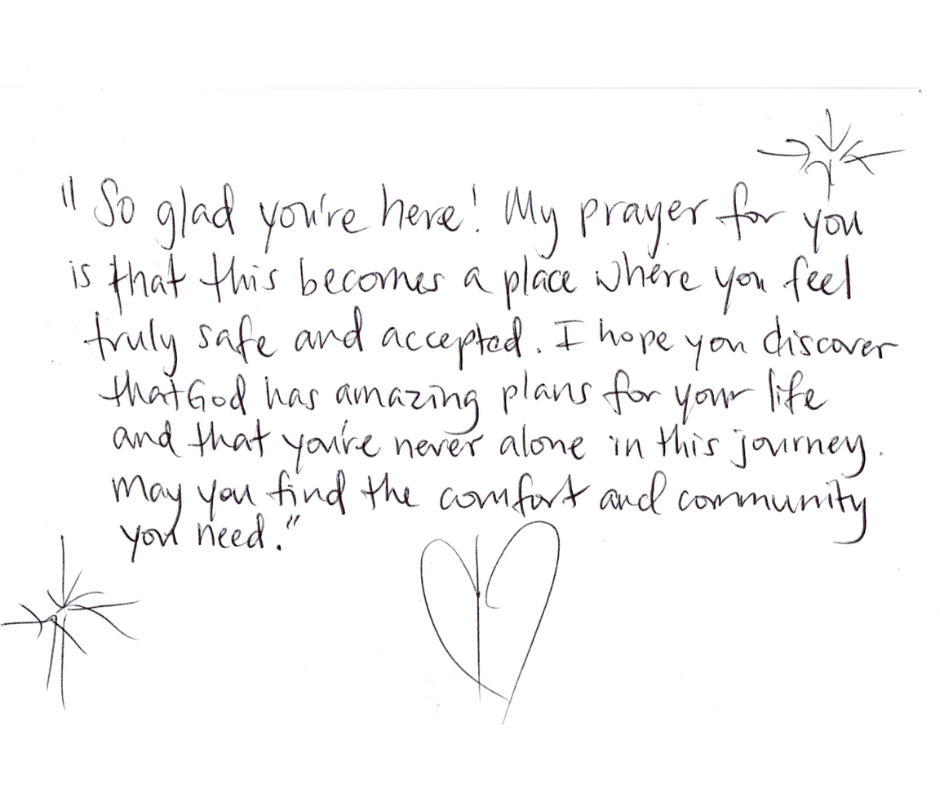 "So glad you're here! My prayer for you
is that this becomes a place where you feel
truly safe and accepted. I hope you discover
that God has amazing plans for your life
and that you're never alone in this journey.
May you find the comfort and community
you need."